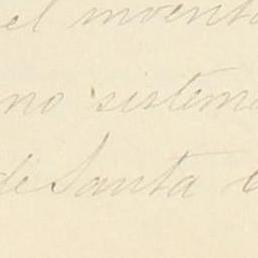 el invento
no sistema
de Santa